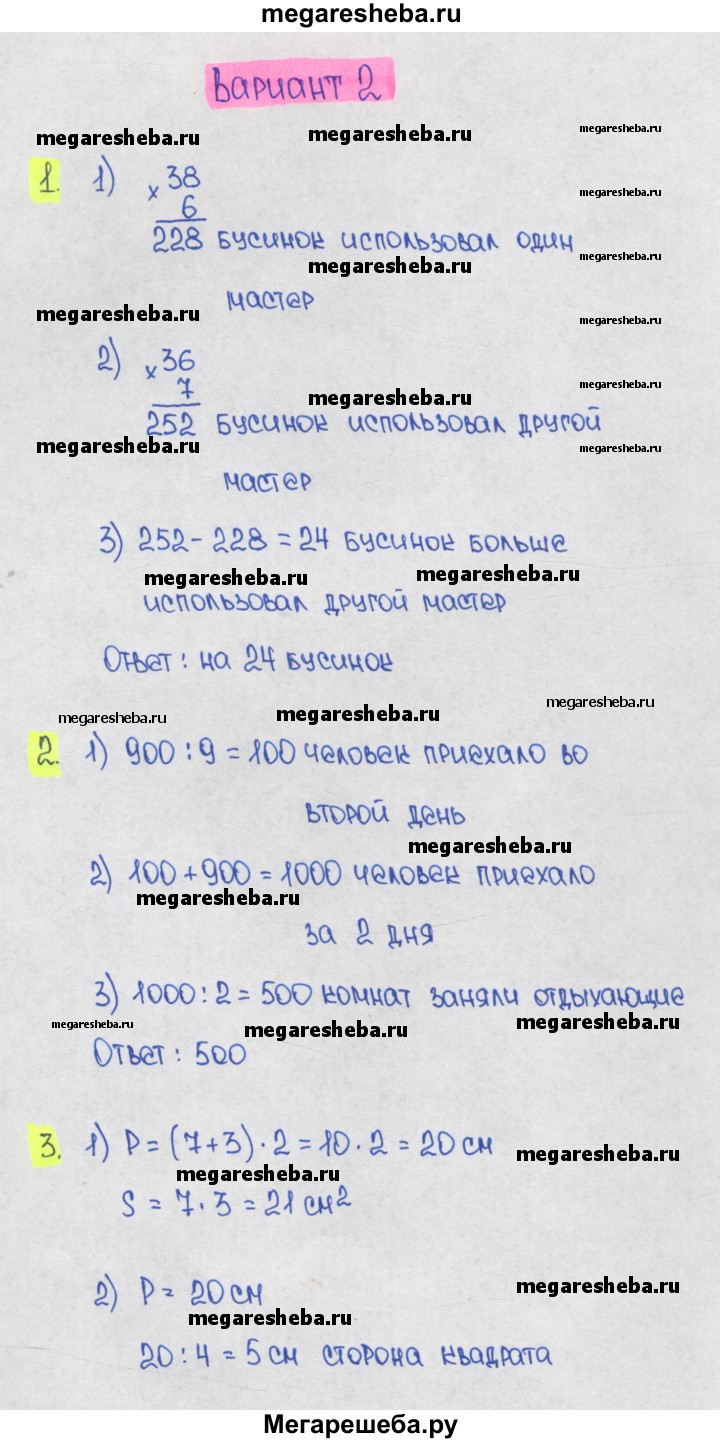 megaresheba.ru
Вариант 2
megaresheba.ru megaresheba.ru megaresheba.ru
1. 1) × 38
6
megaresheba.ru
228 бусинок использовал один
megaresheba.ru megaresheba.ru
мастер
megaresheba.ru megaresheba.ru
2) × 36
7
megaresheba.ru megaresheba.ru
252 бусинок использовал другой
megaresheba.ru megaresheba.ru
мастер
3) 252 - 228 = 24 бусинок больше
megaresheba.ru megaresheba.ru
использовал другой мастер
Ответ: на 24 бусинок
megaresheba.ru megaresheba.ru megaresheba.ru
2. 1) 900 : 9 = 100 человек приехало во
второй день
megaresheba.ru
2) 100 + 900 = 1000 человек приехало
megaresheba.ru
за 2 дня
3) 1000 : 2 = 500 комнат заняли отдыхающие
megaresheba.ru megaresheba.ru megaresheba.ru
Ответ: 500
3. 1) P = (7+3) · 2 = 10 · 2 = 20 см
megaresheba.ru megaresheba.ru
S = 7 · 3 = 21 см²
2) P = 20 см
megaresheba.ru megaresheba.ru
20 : 4 = 5 см сторона квадрата
Мегарешеба.ру